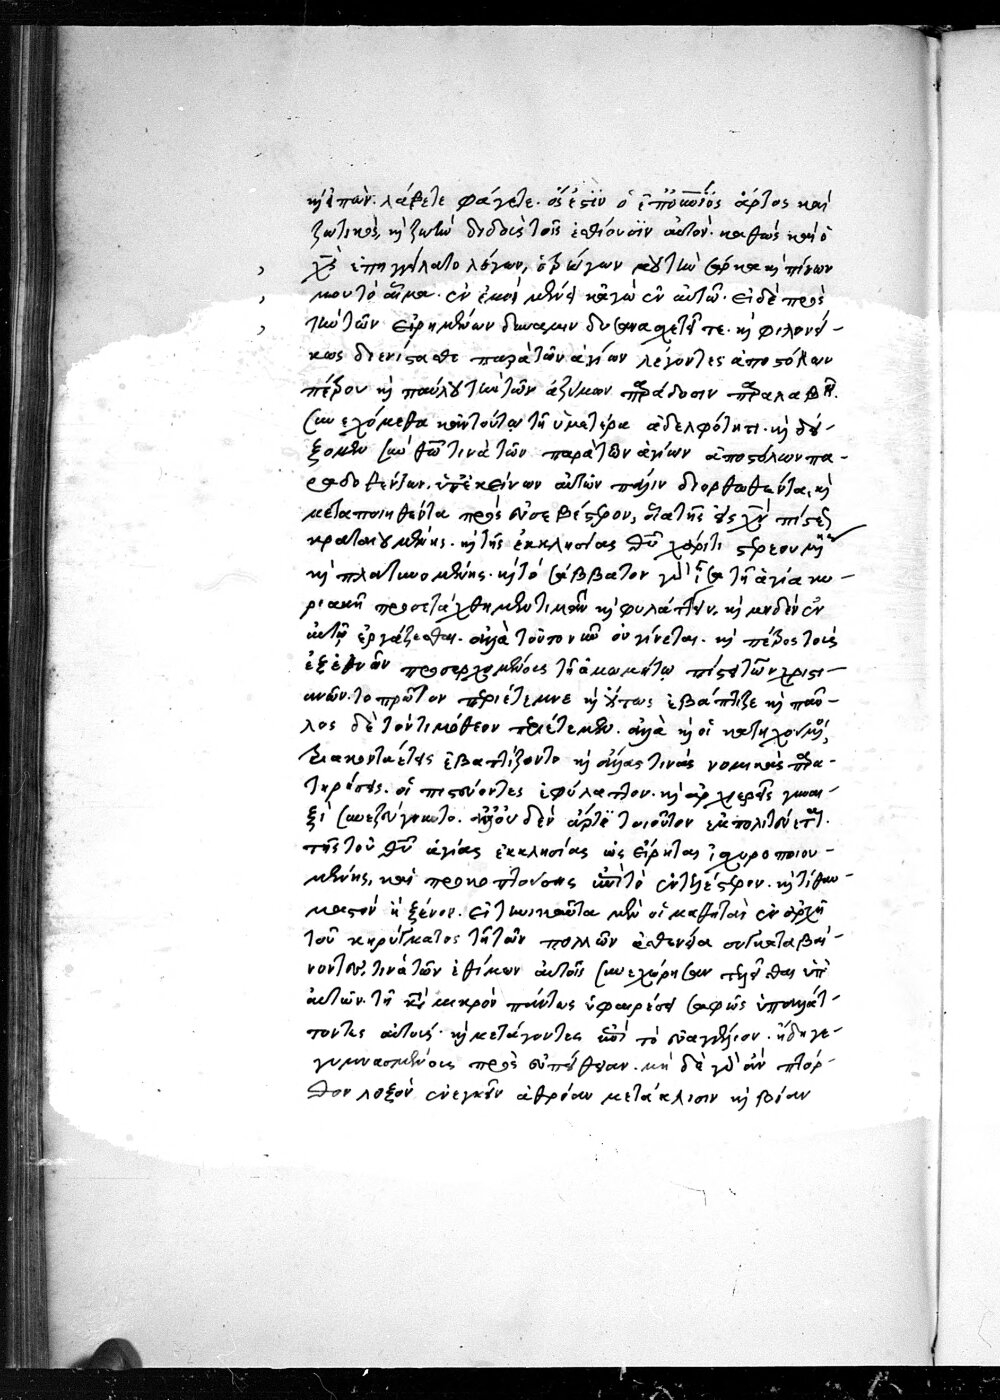 κ(αὶ) εἰπὼν. λάβετε φάγετε. ὅς ἐστιν ὁ ἄρτος καὶ
ζωτικὸς, κ(αὶ) ζωὴν διδοὺς τοῖς ἐσθίουσιν αὐτόν. καθὼς καὶ ὁ
χς ἐπηγγείλατο λέγων, ὁ τρώγων μου τὴν σάρκα κ(αὶ) πίνων
μου τὸ αἷμα. ἐν ἐμοὶ μένει κἀγὼ ἐν αὐτῶ. εἰ δὲ πρὸς
τὴν τῶν εἰρημένων δύναμιν δυσανασχετεῖτε. κ(αὶ) φιλονεί-
κως διενίστασθε παρὰ τῶν ἁγίων λέγοντες ἀποστόλων
πέτρου κ(αὶ) παύλου τὴν τῶν ἀζύμων παράδοσιν παραλαβεῖν.
συνεχόμεθα κἂν τούτω τῆ ὑμετέρα ἀδελφότητι. κ(αὶ) δεί-
ξομεν τινὰ τῶν παρὰ τῶν ἁγίων ἀποστόλων πα-
ραδοθέντων, ὑπ' ἐκείνων αὐτῶν πάλιν διορθωθέντα, κ(αὶ)
μεταποιηθέντα πρὸς εὐσεβέστερον, διὰ τῆς εἰς χν πίστεως
κραταιουμένης. κ(αὶ) τῆς ἐκκλησίας θυ χάριτι στερεουμένης
κ(αὶ) πλατυνομένης. κ(αὶ) τὸ σάββατον γὰρ ἴσα τῆ ἁγία κυ-
ριακῆ προσετάχθημεν τιμᾶν κ(αὶ) φυλάττειν, κ(αὶ) μηδὲν ἐν
αὐτῶ ἐργάζεσθαι. ἀλλὰ τοῦτο νῦν οὐ γίνεται. κ(αὶ) πέτρος τοὺς
ἐξ ἐθνῶν προσερχομένους τῆ ἀμωμήτω πίστει τῶν χριστι-
ανῶν. τὸ πρῶτον περιέτεμνε κ(αὶ) οὕτως ἐβάπτιζε κ(αὶ) παῦ-
λος δὲ τὸν τιμόθεον περιέτεμεν. ἀλλὰ κ(αὶ) οἱ κατηχούμενοι,
τριακονταέτεις ἐβαπτίζοντο κ(αὶ) ἄλλας τινὰς νομικὰς παρα-
τηρήσεις. οἱ πιστεύοντες ἐφύλαττον. κ(αὶ) ἀρχιερεῖς γυναι-
ξὶ συνεζεύγνυντο. ἀλλ' οὐδὲν ἄρτι τοιοῦτον ἐκπολιτεύεται.
τῆς τοῦ θυ ἁγίας ἐκκλησίας ὡς εἴρηται ἰσχυροποιου-
μένης, καὶ προκοπτούσης ἐπὶ τὸ ἐντελέστερον. κ(αὶ) τί θαυ-
μαστὸν ἢ ξένον. εἰ τηνικαῦτα μὲν οἱ μαθηταὶ ἐν ἀρχῆ
τοῦ κηρύγματος τῆ τῶν πολλῶν ἀσθενεία συγκαταβαί-
νοντες τινὰ τῶν ἐθίμων αὐτοῖς συνεχώρησαν τελεῖσθαι ὑπ'
αὐτῶν. τῆ κατὰ μικρὸν πάντως ὑφαιρέσει σαφῶς ὑποπλάτ-
τοντες αὐτοὺς. κ(αὶ) μετάγοντες ἐπὶ τὸ εὐαγγέλιον. ἤδη γε-
γυμνασμένους πρὸς εὐπείθειαν. μὴ δὲ γὰρ ἂν πτόρ-
θον λοξὸν ἐνεγκεῖν ἀθρόαν μετάκλισιν κ(αὶ) βίαν